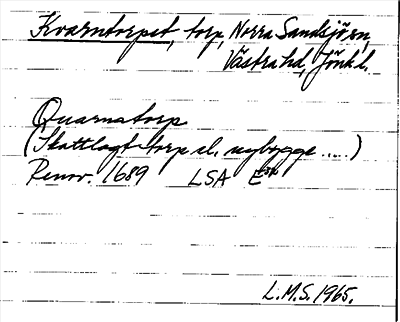 Kvarntorpet, torp, Norra Sandsjö sn,
Västra hd, Jönk. l.
Quarnatorp
(Skattlagt torp el. nybygge .....)
Renov. 1689 LSA
L.M.S. 1965.